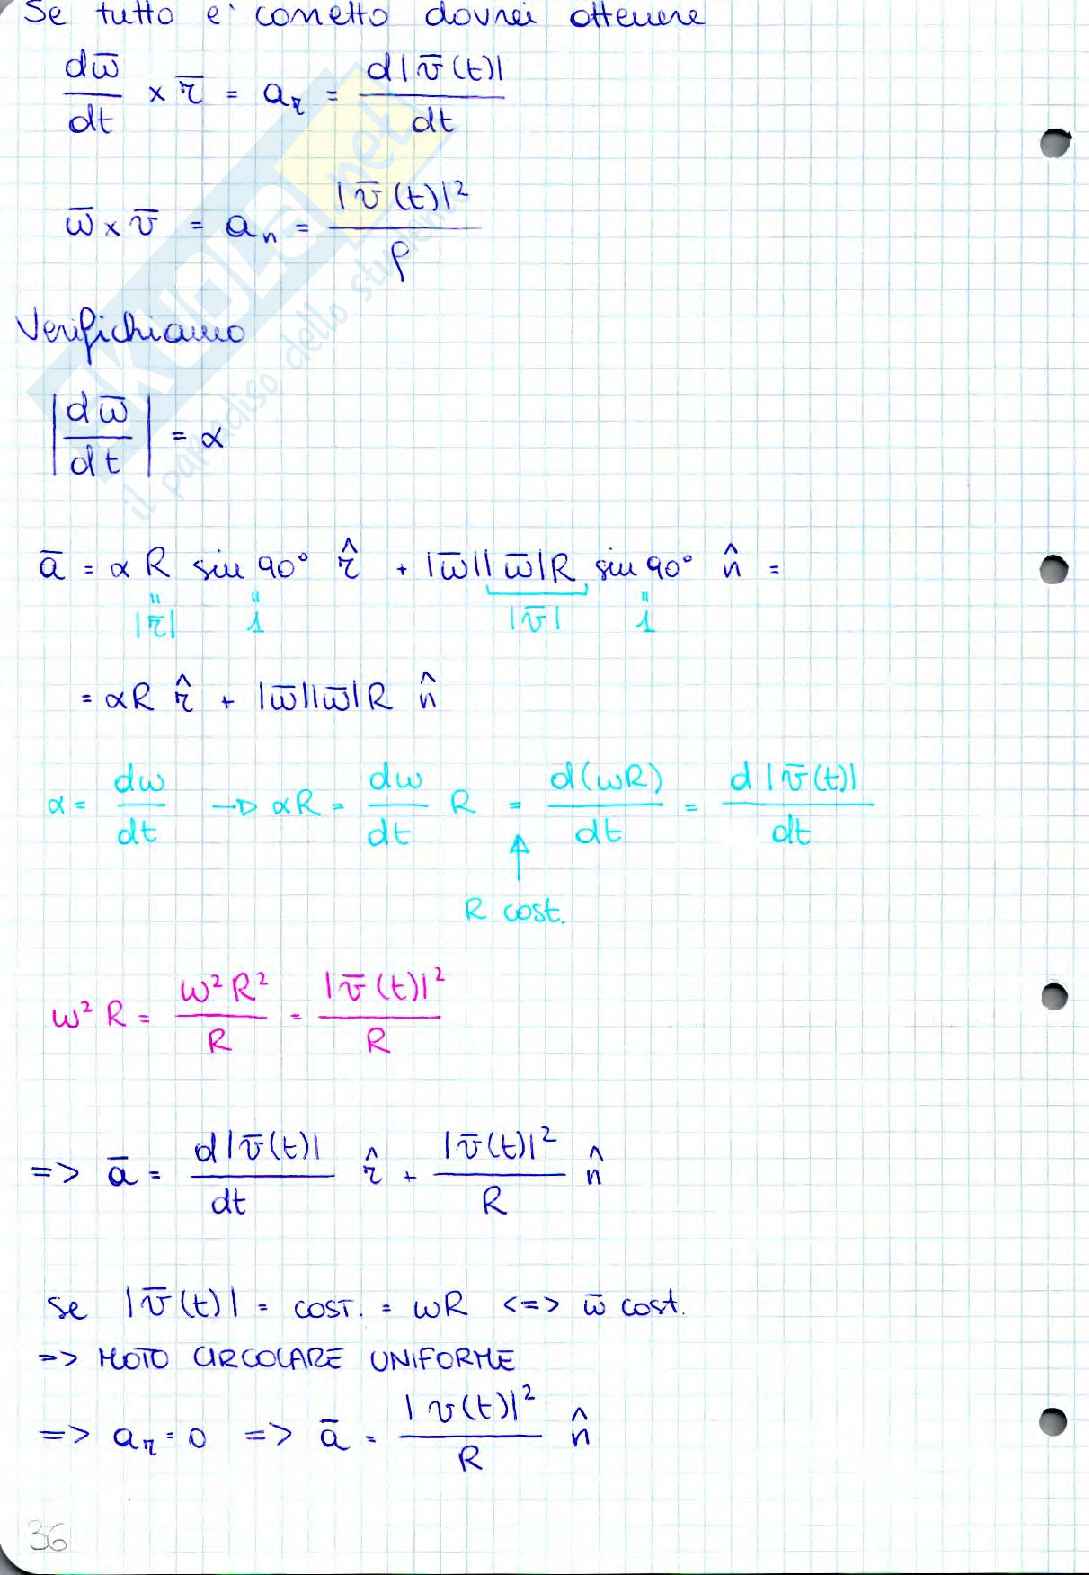 Se tutto e' corretto dovrei ottenere
dω̄/dt × r̄ = a_τ = d|v̄(t)|/dt
ω̄ × v̄ = a_n = |v̄(t)|²/ρ
Verifichiamo
|dω̄/dt| = α
ā = α R sin 90° τ̂ + |ω̄||ω̄|R sin 90° n̂ =
|r̄| 1 |v̄| 1
= αR τ̂ + |ω̄||ω̄|R n̂
α = dω/dt → αR = dω/dt R = d(ωR)/dt = d|v̄(t)|/dt
R cost.
ω² R = ω²R²/R = |v̄(t)|²/R
=> ā = d|v̄(t)|/dt τ̂ + |v̄(t)|²/R n̂
se |v̄(t)| = cost. = ωR <=> ω̄ cost.
=> MOTO CIRCOLARE UNIFORME
=> a_τ = 0 => ā = |v(t)|²/R n̂
36
SKUOLA.net
il paradiso dello studente